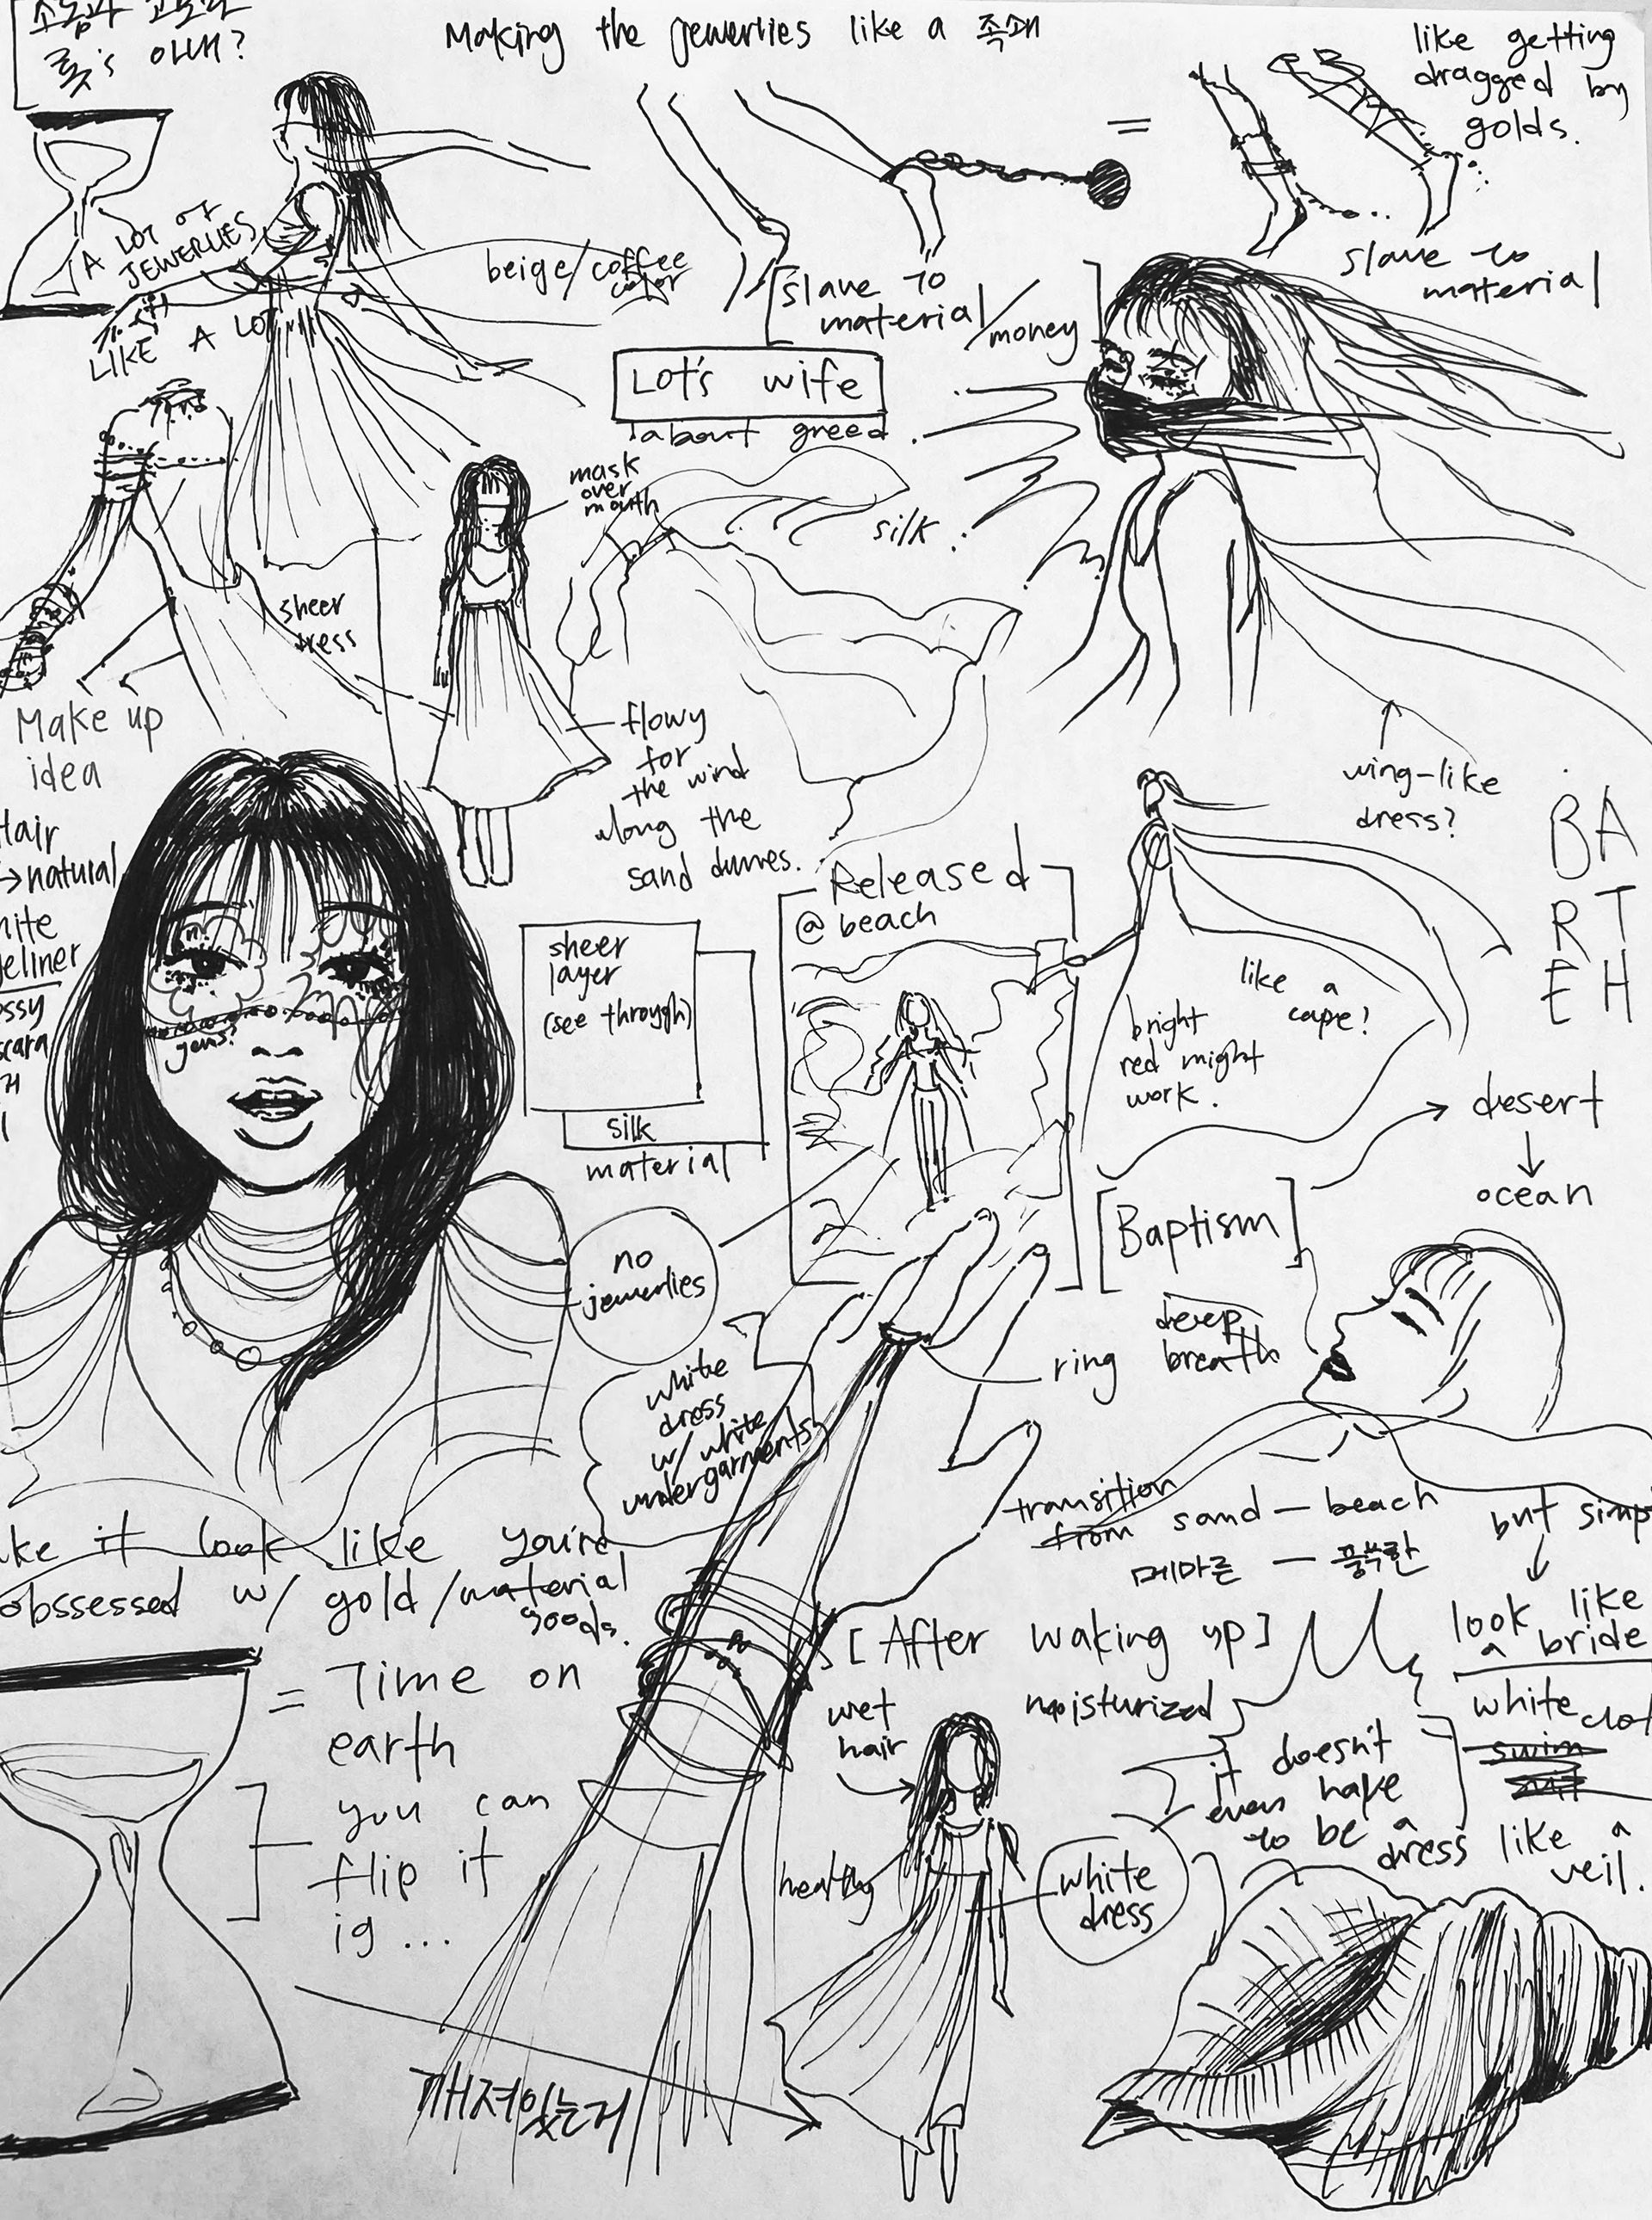 소돔과 고모라
롯's 아내?
Making the jewerlies like a 족쇄
like getting
dragged by
golds.
=
A LOT OF
JEWERLIES
LIKE A LOT
beige/coffee
color
[slave to
material/money]
slave to
material
Lot's wife
about greed.
mask
over
mouth
silk
sheer
dress
flowy
for
the wind
along the
sand dunes.
wing-like
dress?
BREATHE
Make up
idea
Hair
→ natural
gems?
sheer
layer
(see through)
silk
material
Released
@ beach
like a
cape?
bright
red might
work.
desert
↓
ocean
[Baptism]
deep
breath
ring
no
jewerlies
white
dress
w/ white
undergarments
transition
from sand — beach
메마른 — 풍부한
but simp
look like
a bride
it look like you're
obssessed w/ gold/material
goods.
= Time on
earth
you can
flip it
ig...
[After waking up]
wet
hair
moisturized
healthy
white
dress
it doesn't
even have
to be a
dress like a
veil.
white clot
swim
깨져있는거